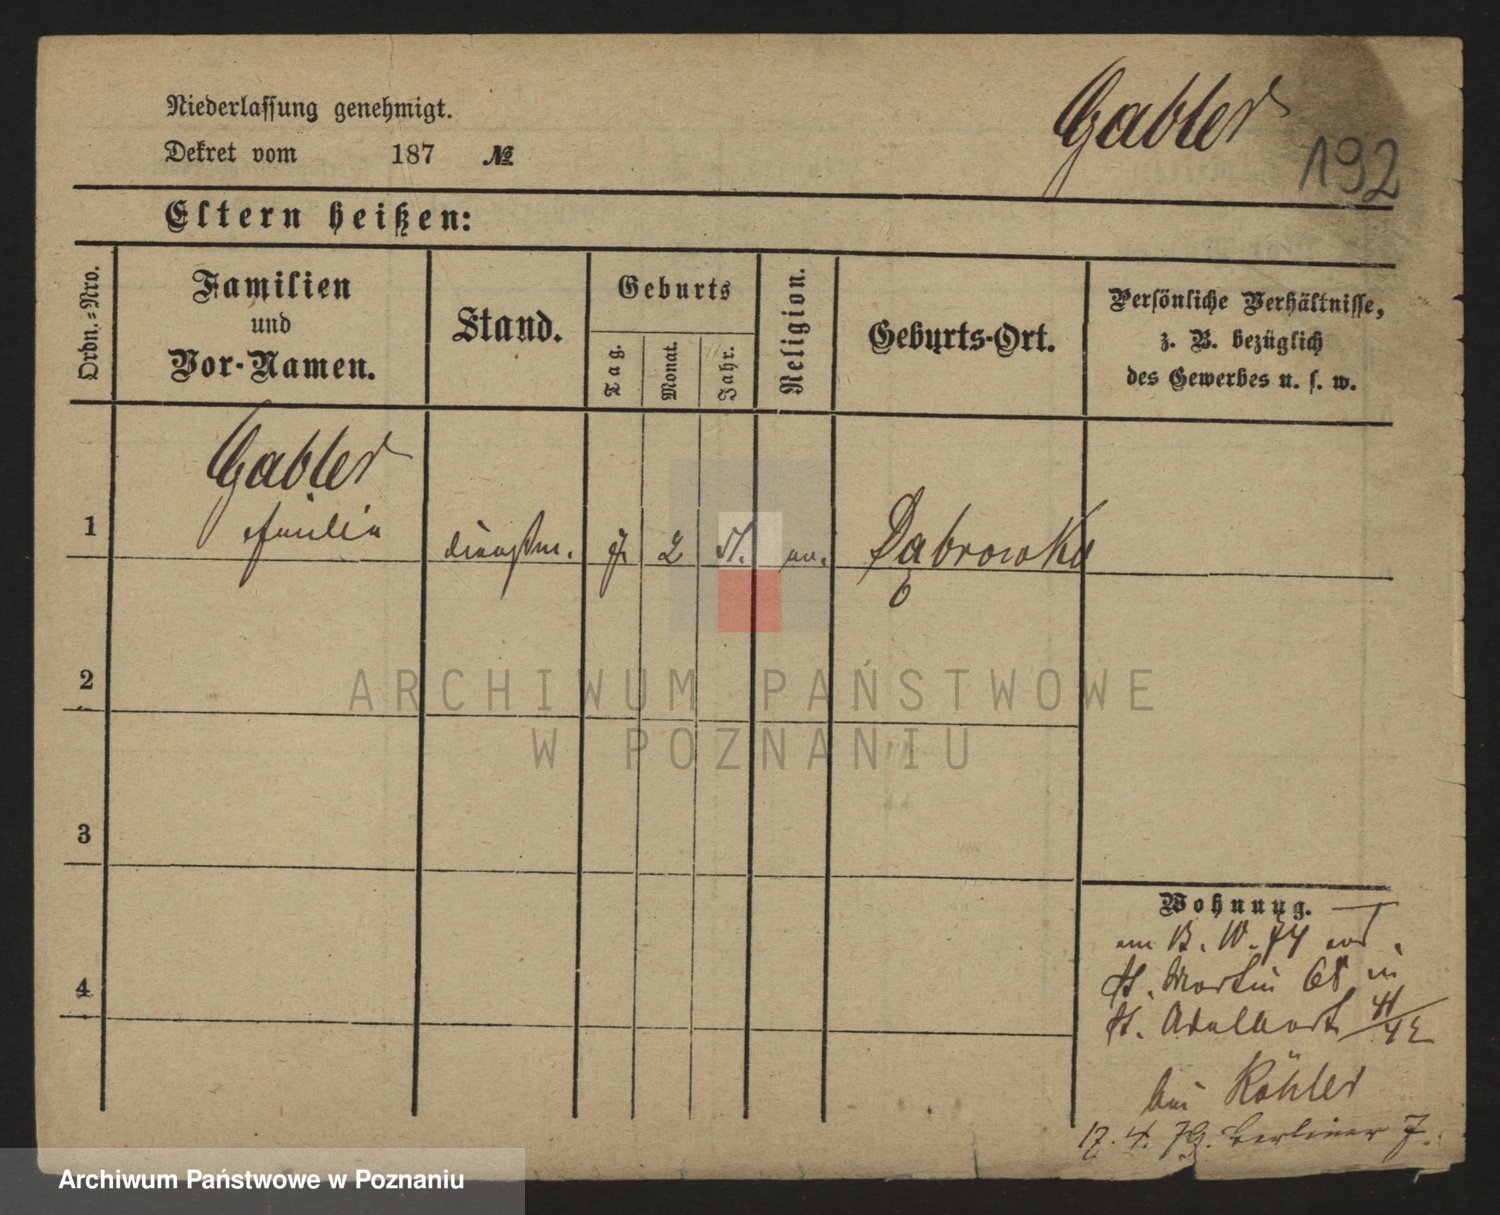 Niederlassung genehmigt.
Dekret vom 187 №
Gabler
192
Eltern heißen:
Ordn.=Nro.
Familien
und
Vor-Namen.
Stand.
Geburts
Tag.
Monat.
Jahr.
Religion.
Geburts-Ort.
Persönliche Verhältnisse,
z. B. bezüglich
des Gewerbes u. s. w.
1
Gabler
2
Dąbrowka
2
ARCHIWUM PAŃSTWOWE
W POZNANIU
3
4
Wohnung.
St. Martin 68 in
St. Adalbert 41/42
bei Köhler
17. 4. 79. Berliner 7.
Archiwum Państwowe w Poznaniu